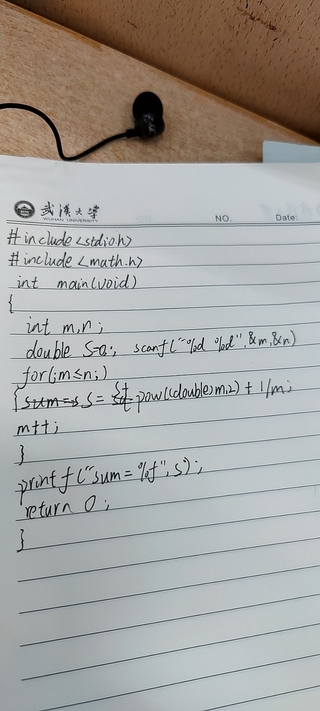 武漢大学
WUHAN UNIVERSITY
NO. Date:
#include<stdioh>
#include<math.h>
int main(void)
{
int m,n;
double S=0; scanf("%d %d",&m,&n)
for(;m≤n;)
{ S = pow((double)m,2) + 1/m;
m++;
}
printf("sum=%f",s);
return 0;
}